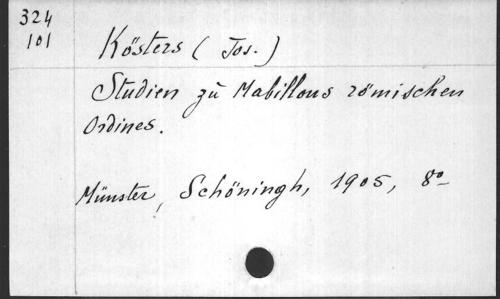 324
101
Kösters (Jos.)
Studien zu Mabillons römischen
Ordines.
Münster, Schöningh, 1905, 8º